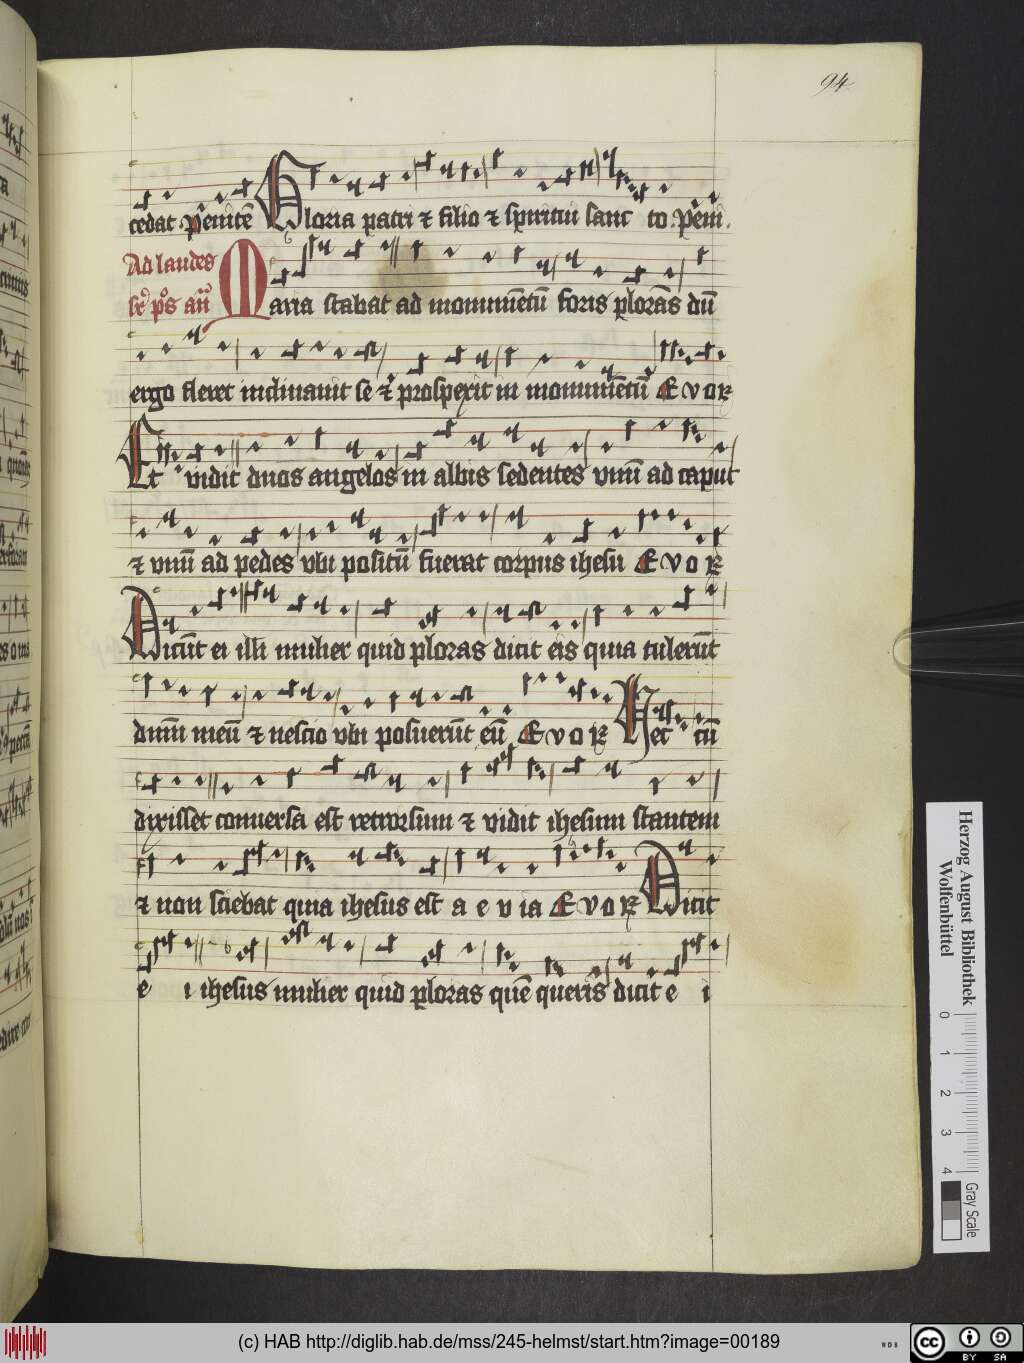 94
cedat. Penitē Gloria patri ⁊ filio ⁊ spiritui sanc to. Peni.
Ad laudes
sr̄ ps añ Maria stabat ad monumētū foris plorās dū
ergo fleret inclinavit se ⁊ prospexit in monumētū EVOR
Et vidit duos angelos in albis sedentes vnū ad caput
⁊ vnū ad pedes vbi positū fuerat corpus ihesu EVOR
Dicūt ei illi mulier quid ploras dicit eis quia tulerūt
dn̄m meū ⁊ nescio vbi posuerūt eū EVOR Hec cū
dixisset conuersa est retrorsum ⁊ vidit ihesum stantem
⁊ non sciebat quia ihesus est a e v ia EVOR Dicit
e i ihesus mulier quid ploras quē queris dicit e i
Herzog August Bibliothek
Wolfenbüttel
0 1 2 3 4
Gray Scale
(c) HAB http://diglib.hab.de/mss/245-helmst/start.htm?image=00189
WDB
cc BY SA